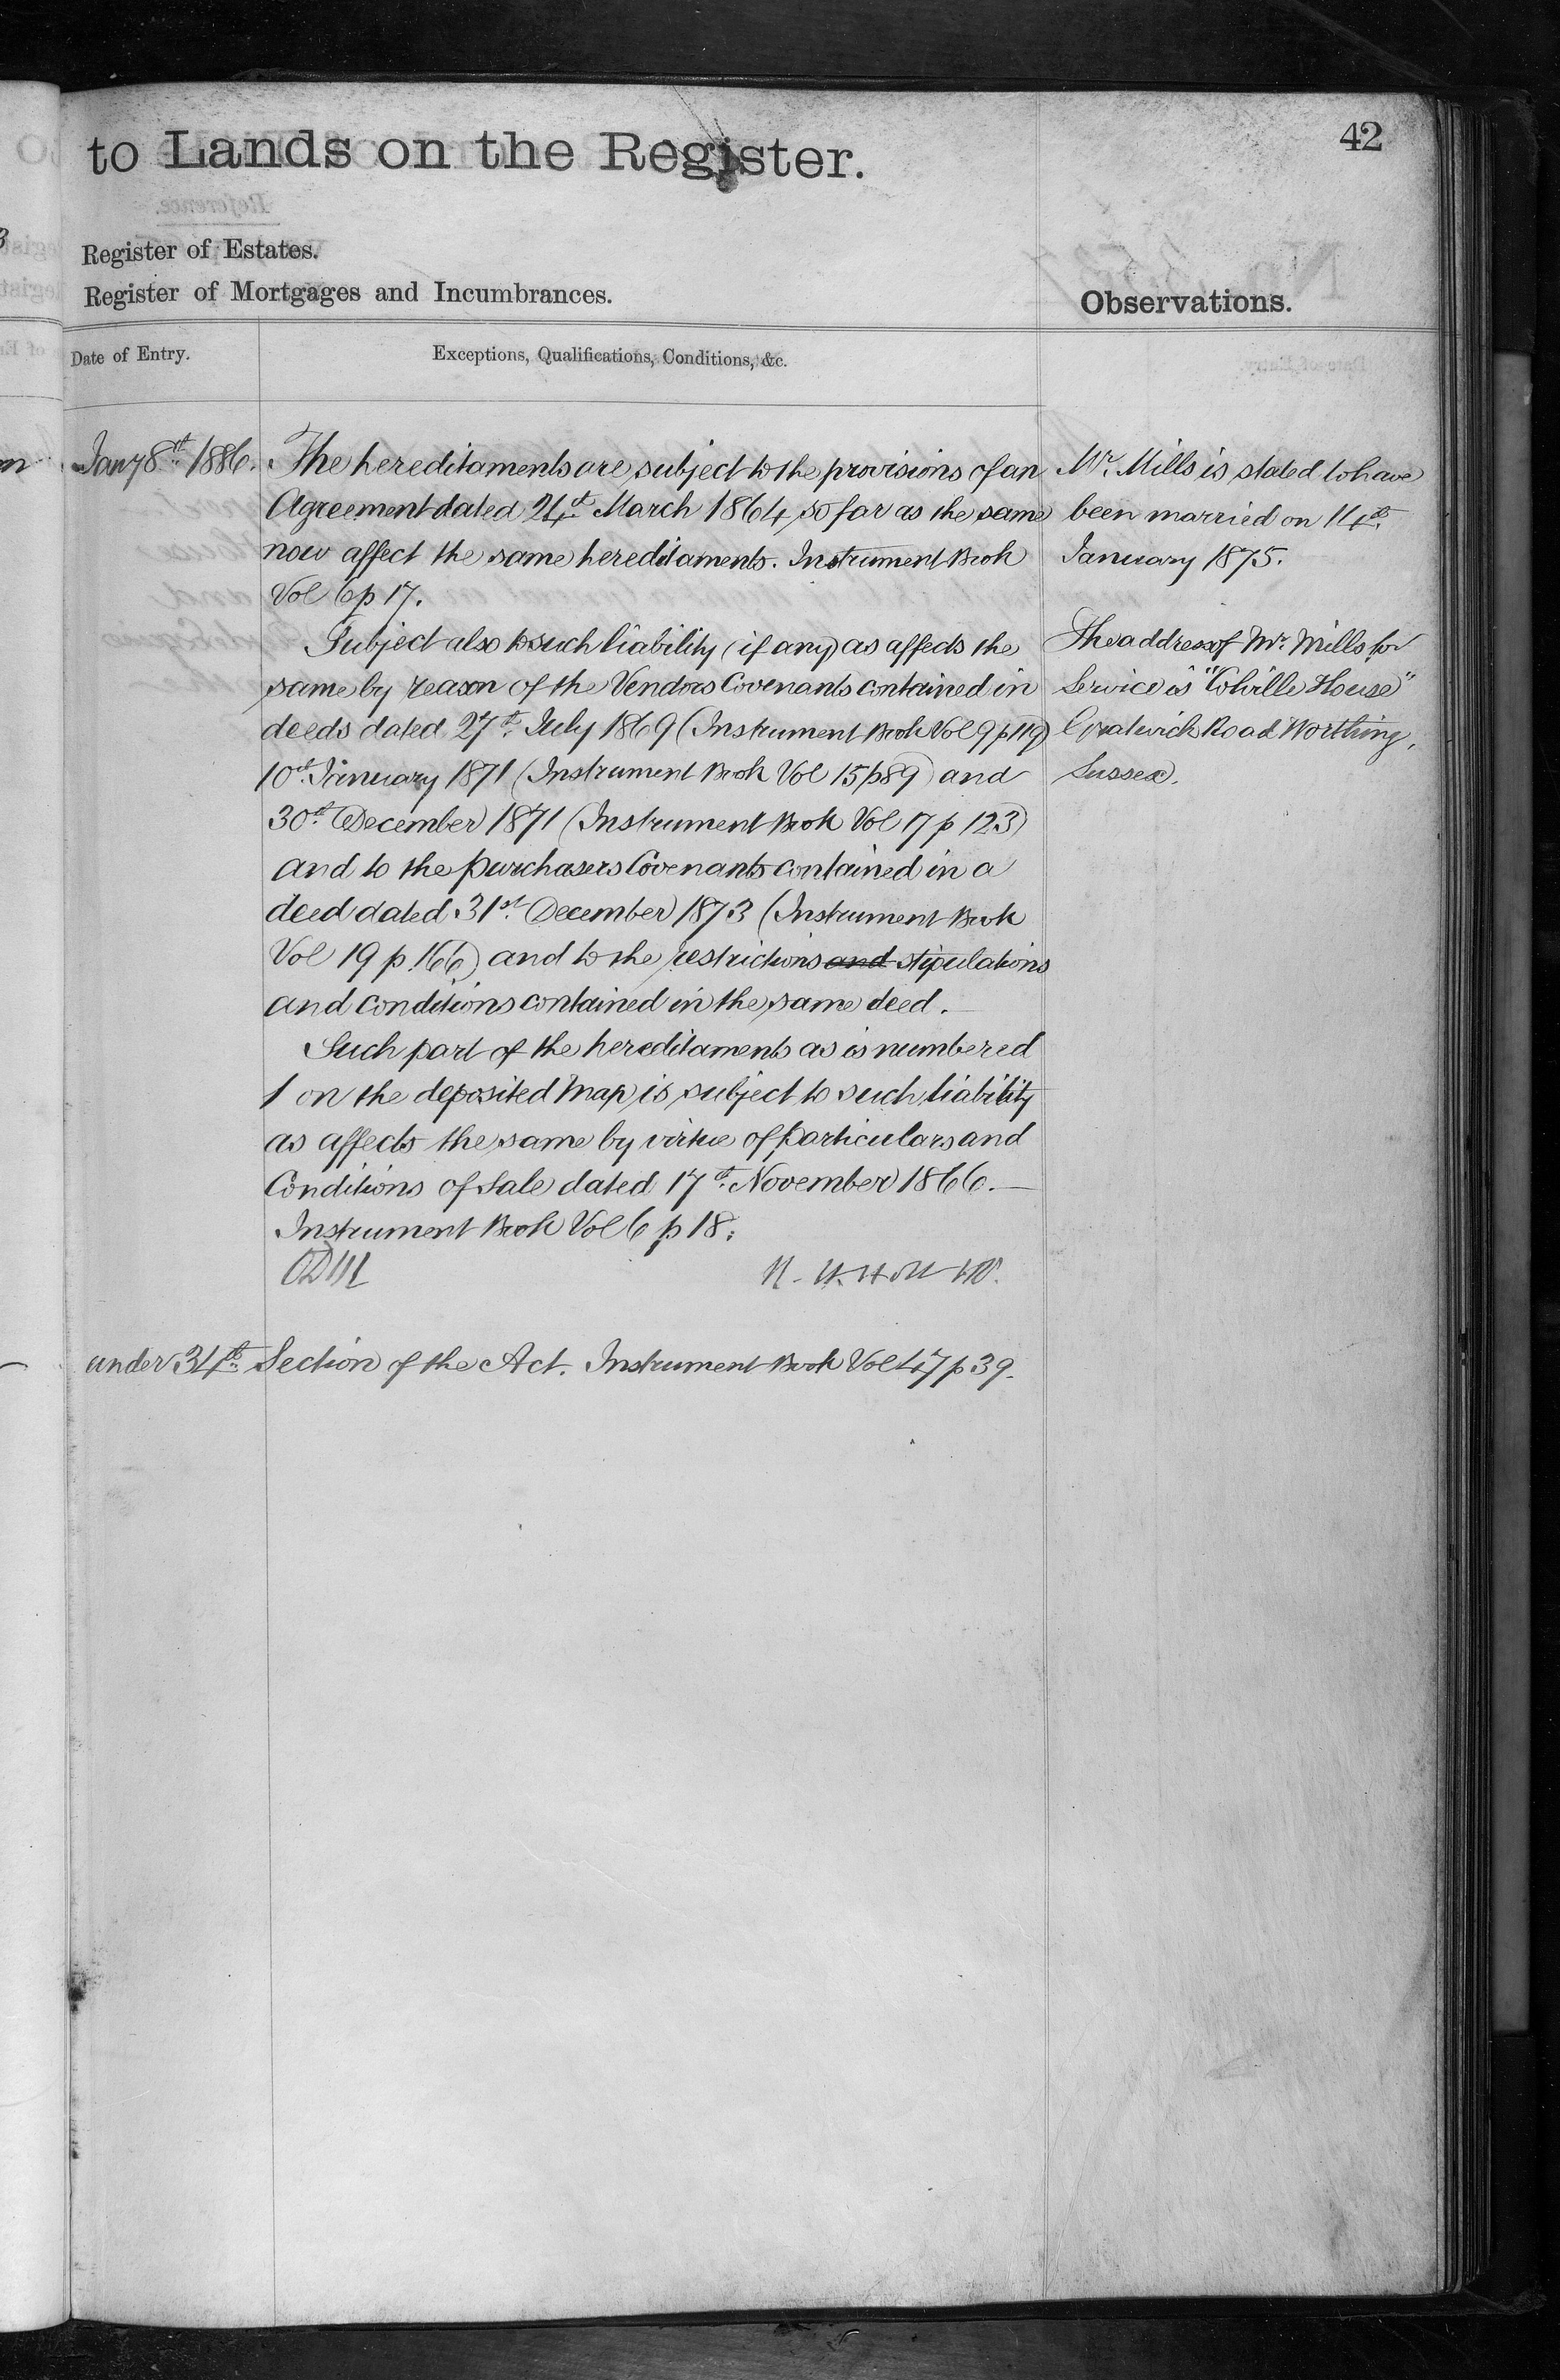 42
to Lands on the Register.
Register of Estates.
Register of Mortgages and Incumbrances.
Observations.
Date of Entry.
Exceptions, Qualifications, Conditions, &c.
Jany 8th 1886.
The hereditaments are subject to the provisions of an
Agreement dated 24th March 1864 so far as the same
now affect the same hereditaments. Instrument Book
Vol 6 p 17.
Subject also to such liability (if any) as affects the
same by reason of the Vendors Covenants contained in
deeds dated 27th July 1869 (Instrument Book Vol 9 p 119)
10th January 1871 (Instrument Book Vol 15 p 89) and
30th December 1871 (Instrument Book Vol 17 p 123)
and to the purchasers Covenants contained in a
deed dated 31st December 1873 (Instrument Book
Vol 19 p 166) and to the restrictions and stipulations
and conditions contained in the same deed.
Such part of the hereditaments as is numbered
1 on the deposited Map is subject to such liability
as affects the same by virtue of particulars and
Conditions of Sale dated 17th November 1866.
Instrument Book Vol 6 p 18.
under 34th Section of the Act. Instrument Book Vol 47 p 39.
Mr. Mills is stated to have
been married on 14th
January 1875.
The address of Mr. Mills for
Service is "Colville House"
Gratwick Road Worthing,
Sussex.